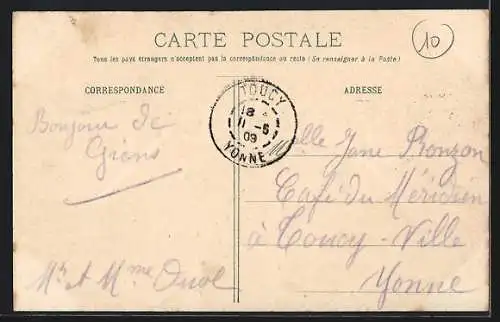 CARTE POSTALE
Tous les pays étrangers n'acceptent pas la correspondance au recto (Se renseigner à la Poste)
10
CORRESPONDANCE
ADRESSE
TOUCY
8
11 -5
09
YONNE
Bonjour de
Giens
Mr et Mme
Mlle Jane Ronzon
Café du Méridien
à Toucy-Ville
Yonne